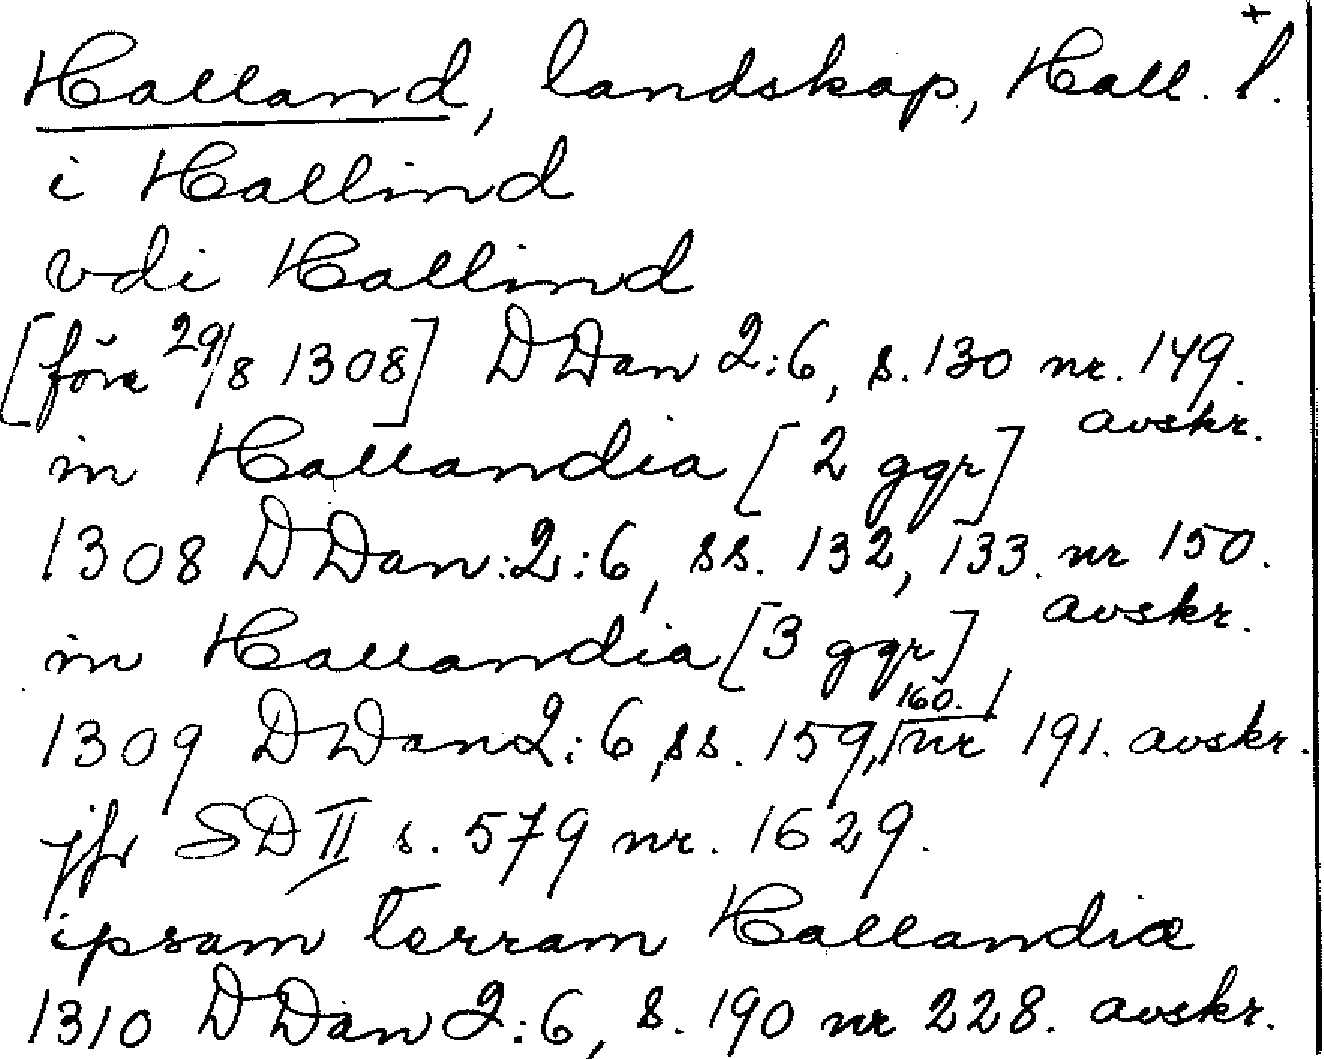 Halland, landskap, Hall. l. +
i Hallind
vdi Hallind
[före 29/8 1308] DDan 2:6, s. 130 nr. 149.
avskr.
in Hallandia [2 ggr]
1308 DDan:2:6, ss. 132, 133. nr 150.
avskr.
in Hallandia [3 ggr]
1309 DDan 2:6, ss. 159, 160. nr 191. avskr.
jfr SD II s. 579 nr. 1629.
ipsam terram Hallandiæ
1310 DDan 2:6, s. 190 nr 228. avskr.